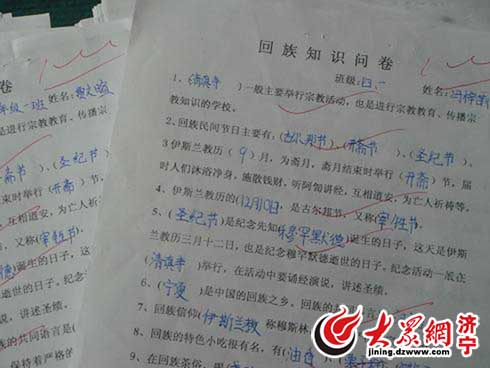 卷
年级一班 姓名:
是进行宗教教育、传播宗
斋节)、(圣纪节)
时举行(开斋)节,
在相道安,为亡人祈
又称(宰牲节)
诞生的日子,这天
德逝世的日子。纪念
讲述圣绩。
的共同语言是(
保持着严格的
回族知识问卷
班级:四.一 姓名:冯梓
1、(清真寺)一般主要举行宗教活动,也是进行宗教教育、传播宗
教知识的学校。
2、回族民间节日主要有:(古尔邦节)、(开斋节)、(圣纪节)
3 伊斯兰教历(9)月,为斋月,斋月结束时举行(开斋)节,届
时人们沐浴净身,施散钱财,听阿訇讲经,互相道安,为亡人祈祷等。
4、伊斯兰教历的(12月10日,是古尔邦节,又称(宰牲节)
5、(圣纪节)是纪念先知(穆罕默德)诞生的日子,这天是伊斯
兰教历三月十二日,也是纪念穆罕默德逝世的日子。纪念活动一般在
(清真寺)举行,在活动中要诵经演说,讲述圣绩。
6、(宁夏)是中国的回族之乡。回族的
7、回族信仰(伊斯兰教)称穆斯林
8、回族的特色小吃很有名,有(油香
9、在回族茶俗,用
大众网 济宁
jining.dzwww.com